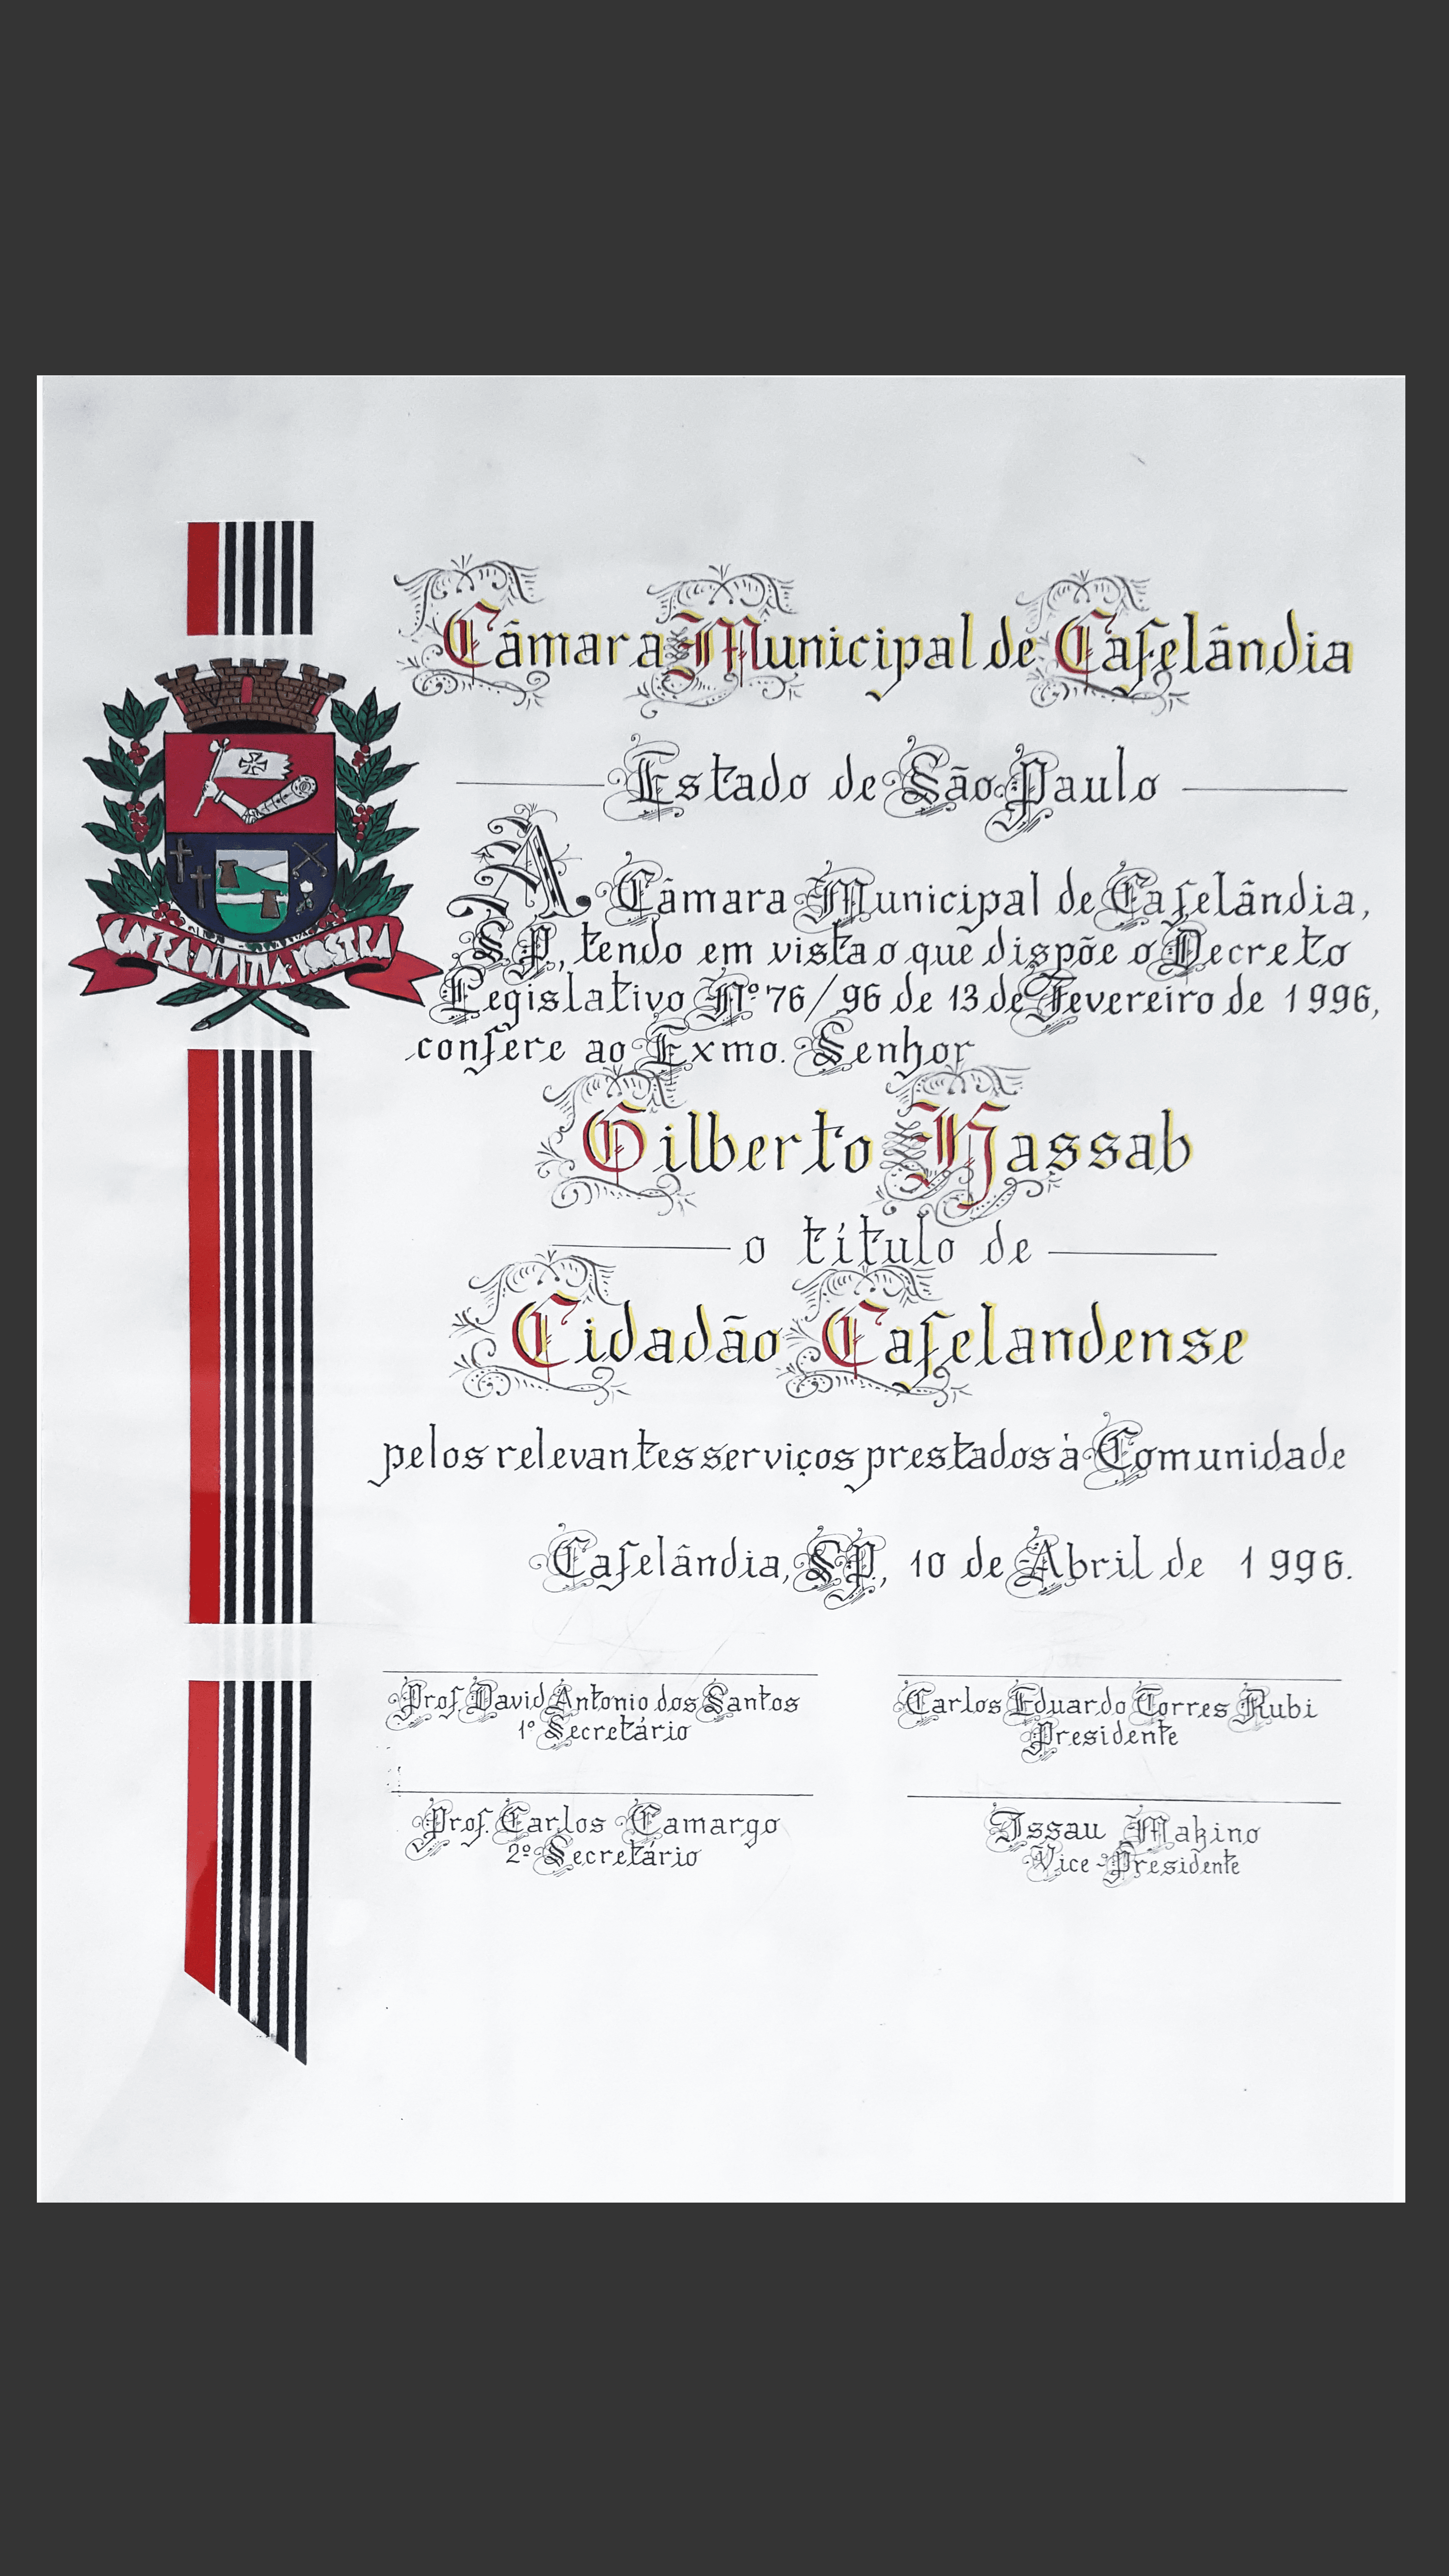 Câmara Municipal de Cafelândia
Estado de São Paulo
A Câmara Municipal de Cafelândia,
SP, tendo em vista o que dispõe o Decreto
Legislativo Nº 76/96 de 13 de Fevereiro de 1996,
confere ao Exmo. Senhor
Gilberto Kassab
o título de
Cidadão Cafelandense
pelos relevantes serviços prestados à Comunidade
Cafelândia, SP, 10 de Abril de 1996.
Prof. David Antonio dos Santos
1º Secretário
Carlos Eduardo Torres Rubi
Presidente
Prof. Carlos Camargo
2º Secretário
Issau Makino
Vice-Presidente
DIVITIA NOSTRA